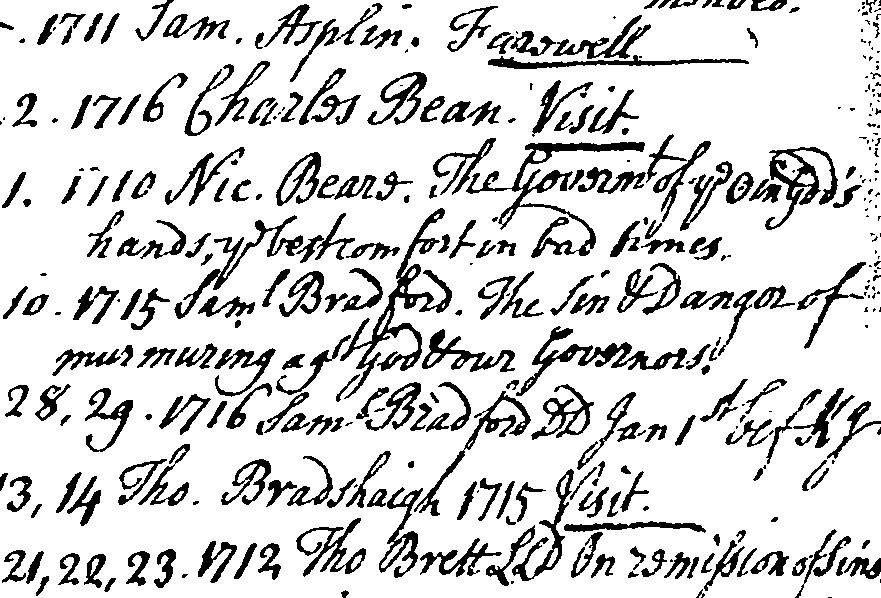 . 1711 Sam. Asplin. Farewell.
2. 1716 Charles Bean. Visit.
1. 1710 Nic. Beare. The Governmt of ye in God's
hands, ye best comfort in bad times.
10. 1715 Saml Bradford. The Sin & Danger of
murmuring agst God & our Governors.
28, 29. 1716 Saml Bradford DD Jan 1st bef Kg
13, 14 Tho. Bradshaigh 1715 Visit.
21, 22, 23. 1712 Tho Brett LLD On remission of sins